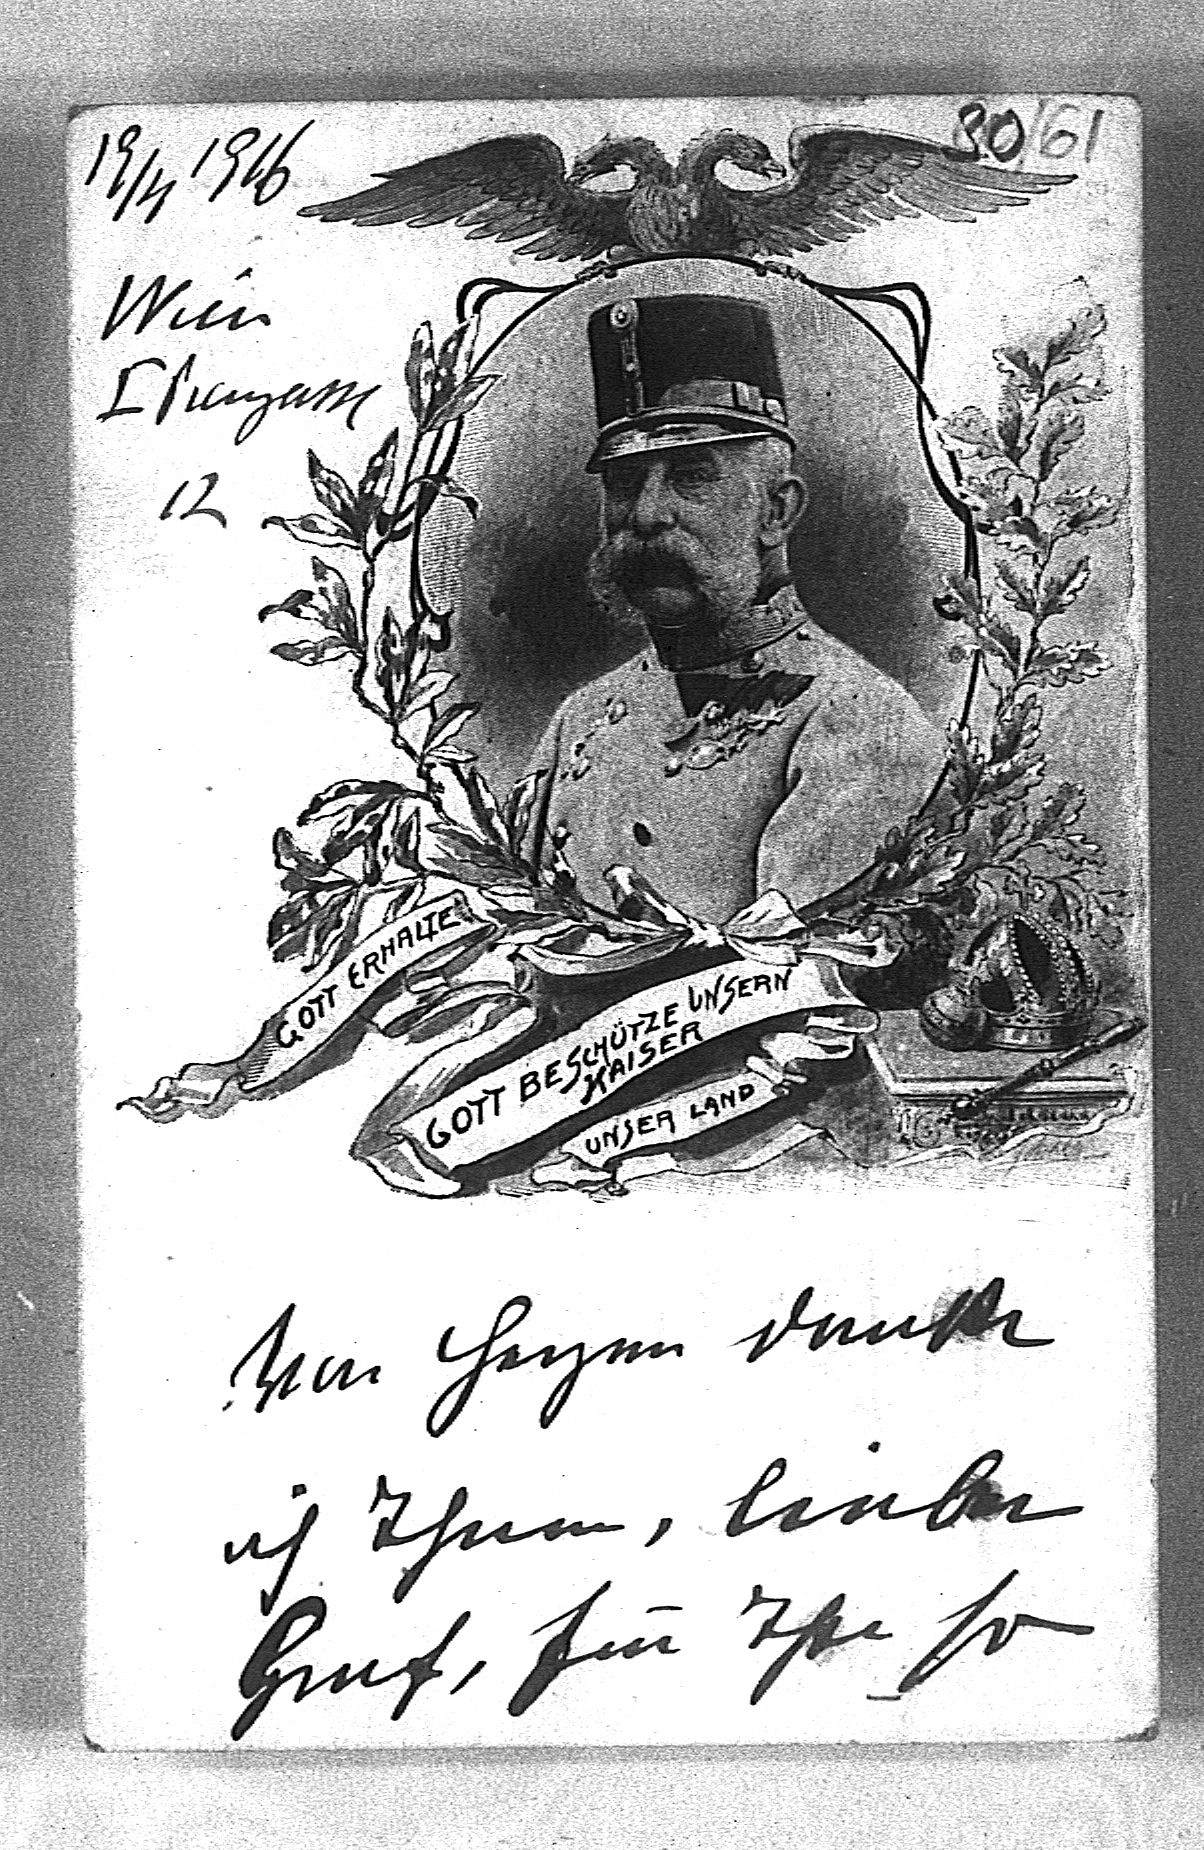 19/4 1916
30/61
Wien
I
12
GOTT ERHALTE
GOTT BESCHÜTZE UNSERN
KAISER
UNSER LAND
Von Herzen danke
ich Ihnen, lieber
Graf, für Ihr so